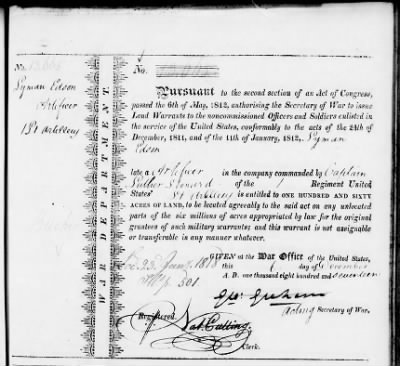 No.
Lyman Edson
Artificer
1st Artillery
WAR DEPARTMENT.
No.
Pursuant to the second section of an Act of Congress,
passed the 6th of May, 1812, authorising the Secretary of War to issue
Land Warrants to the noncommissioned Officers and Soldiers enlisted in
the service of the United States, conformably to the acts of the 24th of
December, 1811, and of the 11th of January, 1812, Lyman
Edson
late a Artificer in the company commanded by Captain
Luther Leonard of the 1 Regiment United
States' Artillery is entitled to ONE HUNDRED AND SIXTY
ACRES OF LAND, to be located agreeably to the said act on any unlocated
parts of the six millions of acres appropriated by law for the original
grantees of such military warrants; and this warrant is not assignable
or transferable in any manner whatever.
GIVEN at the War Office of the United States,
this day of December
A. D. one thousand eight hundred and seventeen
23 Jany. 1818
301
Geo: Graham
Acting Secretary of War.
Registered.
Nat. Cutting.
Clerk.